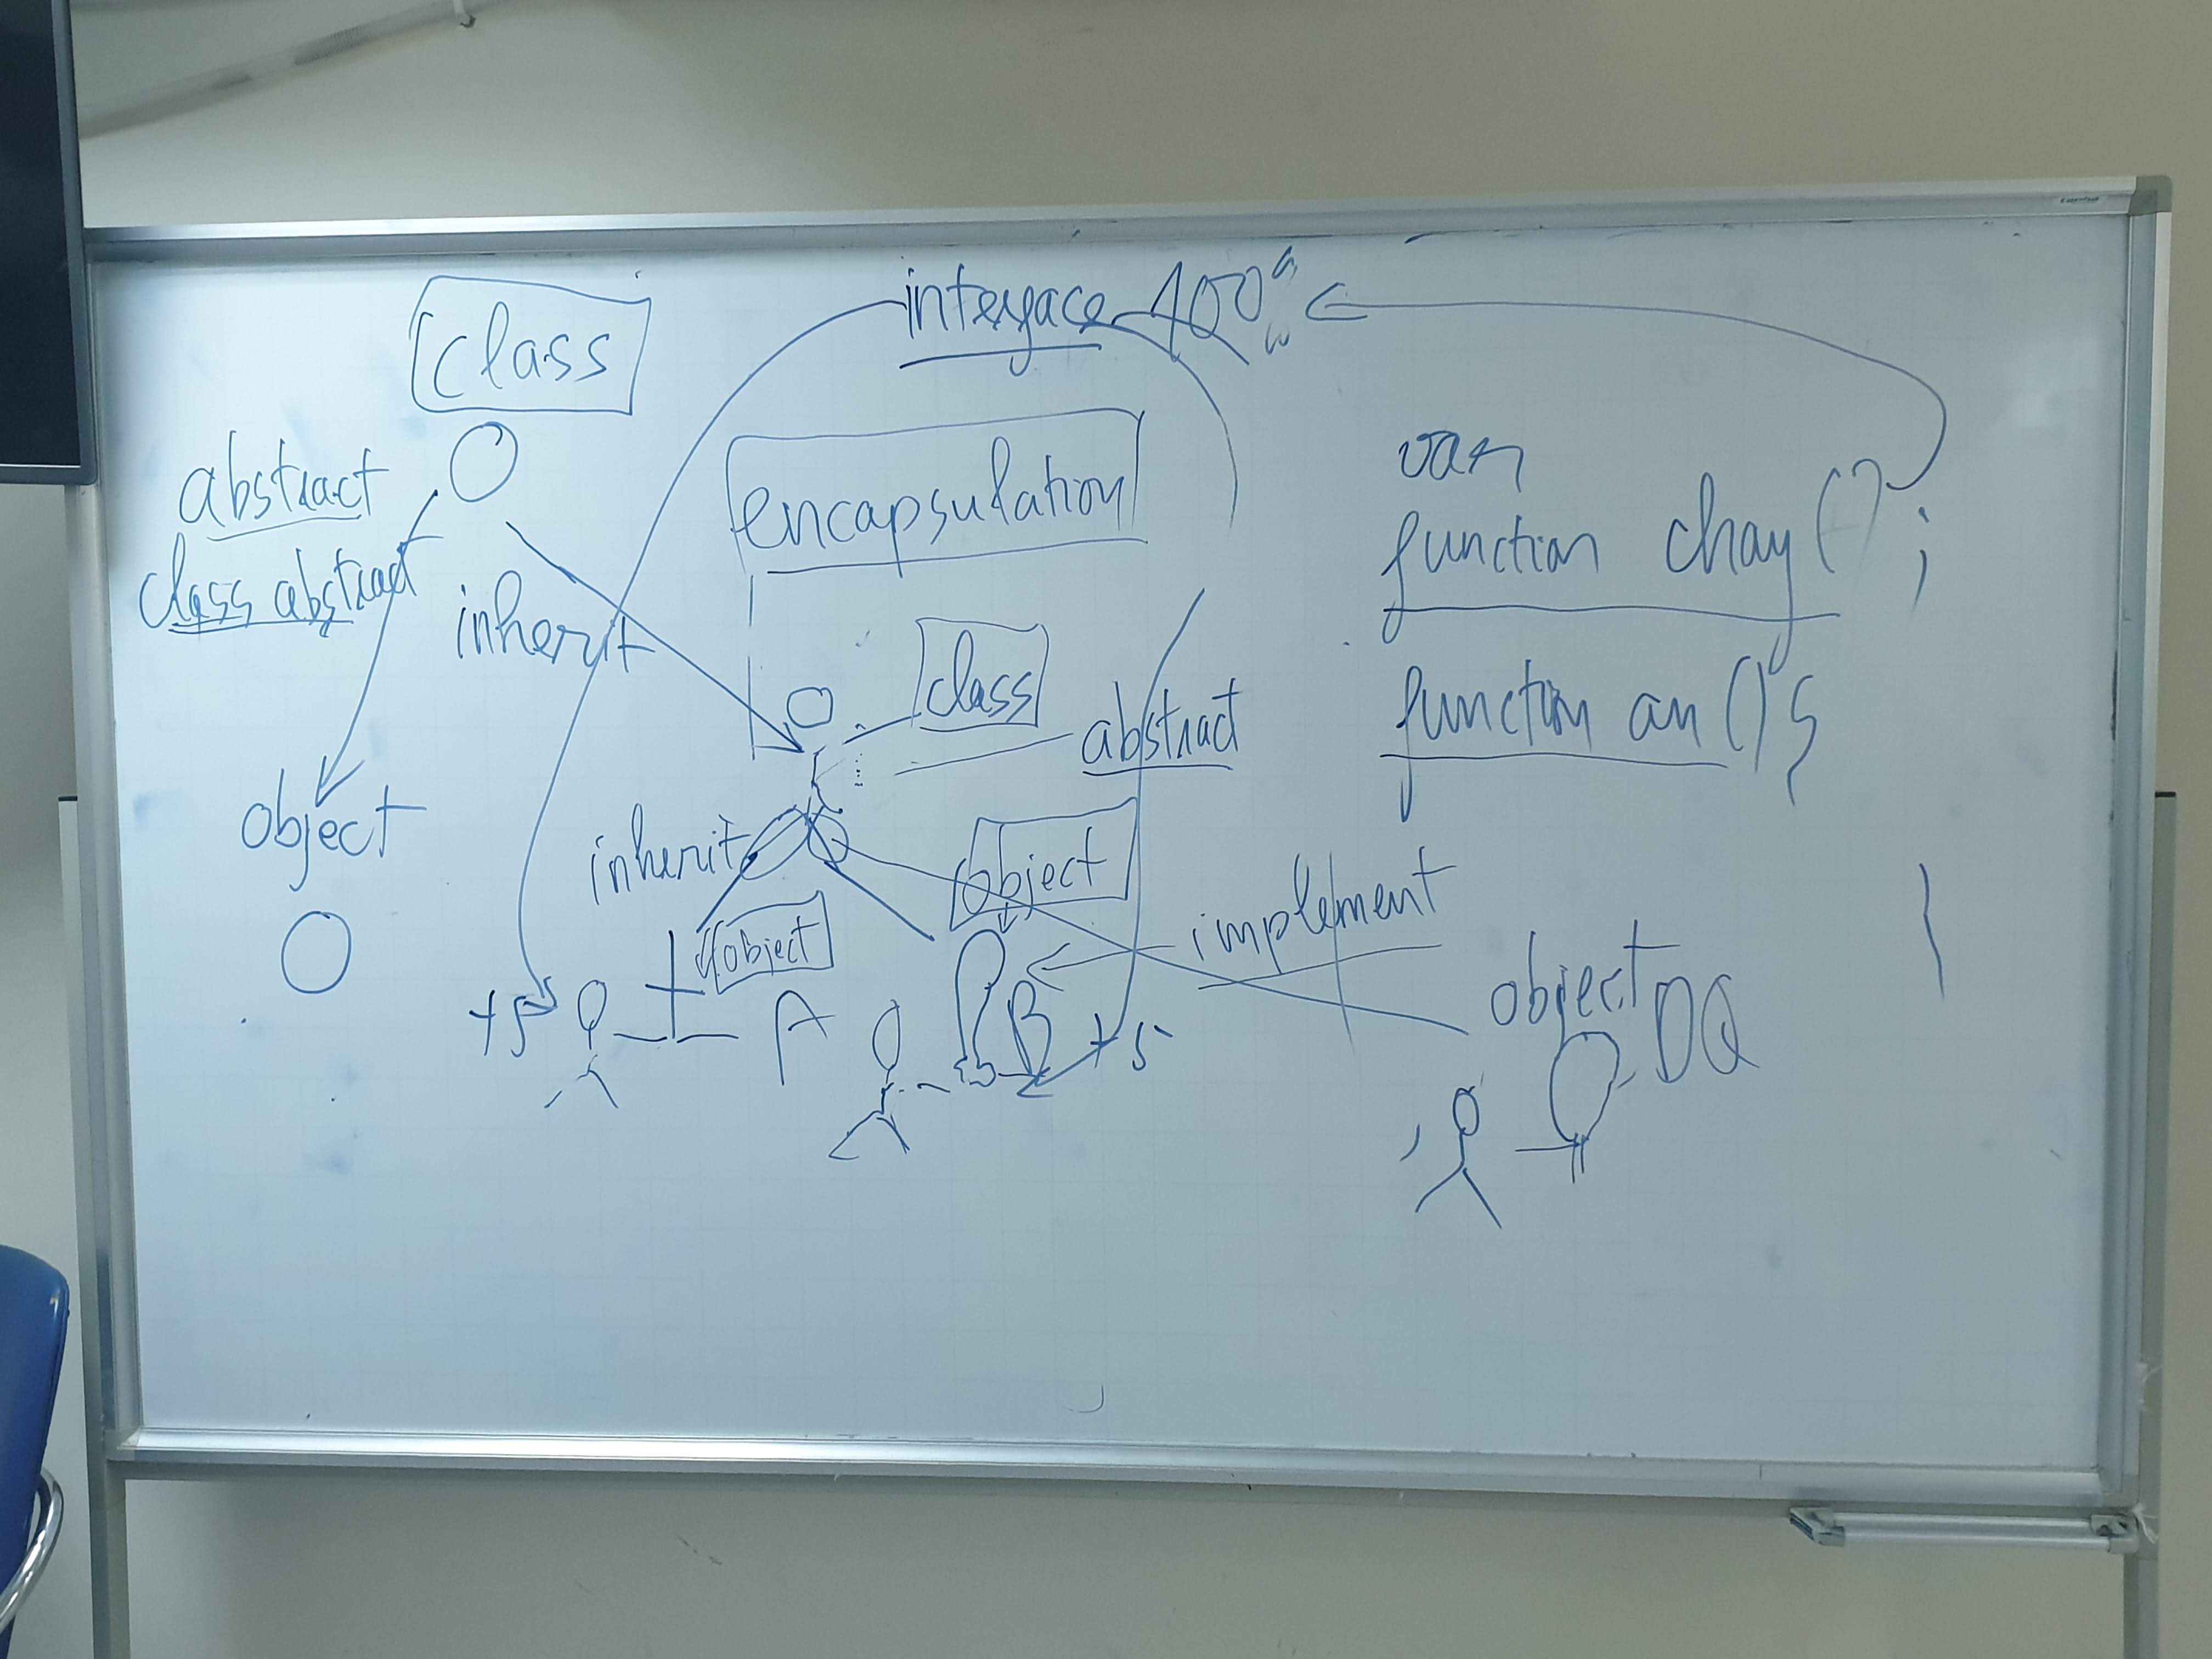 interface 100
class
encapsulation
abstract
class abstract
inherit
object
class
abstract
inherit
object
object
implement
+5
A
B
+5
object DQ
var
function chay();
function an(){
}